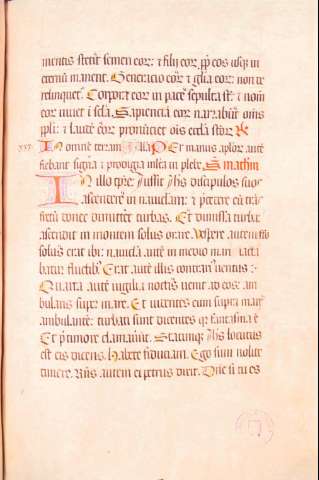 mentis stetit semen eor: et filii eor ppt eos usqz in
eternū manent. Generacio eor et glia eor: non de
relinquet. Corpora eor in pace sepulta st: et nom
eor uiuet i scla. Sapiencia eor narrabūt oms
ppli: et laudē eor pronūciet ois ecclā stor R
In omnē terram. Alla P Et manus aplor autē
fiebant signa et prodigia mlta in plebe. S mathm
In illo tpre: Iussit Ihs discipulos suos
ascendere in nauiclam: et precere eū trās
fretū donec dimittet turbas. Et dimissa turba:
ascendit in montem solus orare. Vespere autem fco
solus erat ibi: nauicla autē in medio mari iacta
batur fluctibꝫ. Erat autē illis contrari uentus:
Quarta autē uigilia noctis uenit ad eos: am
bulans supra mare. Et uidentes eum supra mare
ambulantē: turbati sunt dicentes qz fantasma ē
Et p timore clamauerūt. Statimqz Ihs locutus
est eis dicens. Habete fiduciam. Ego sum nolite
timere. Rns autem ei petrus dixit. Dne si tu es